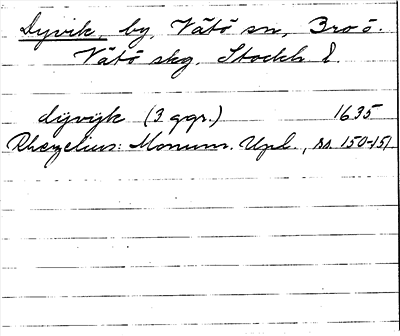 Dyvik, by, Vätö sn, Bro ö.
Vätö skg. Stockh. l.
dijvijk (3 ggr.) 1635
Rhezelius: Monum. Upl., ss. 150-151